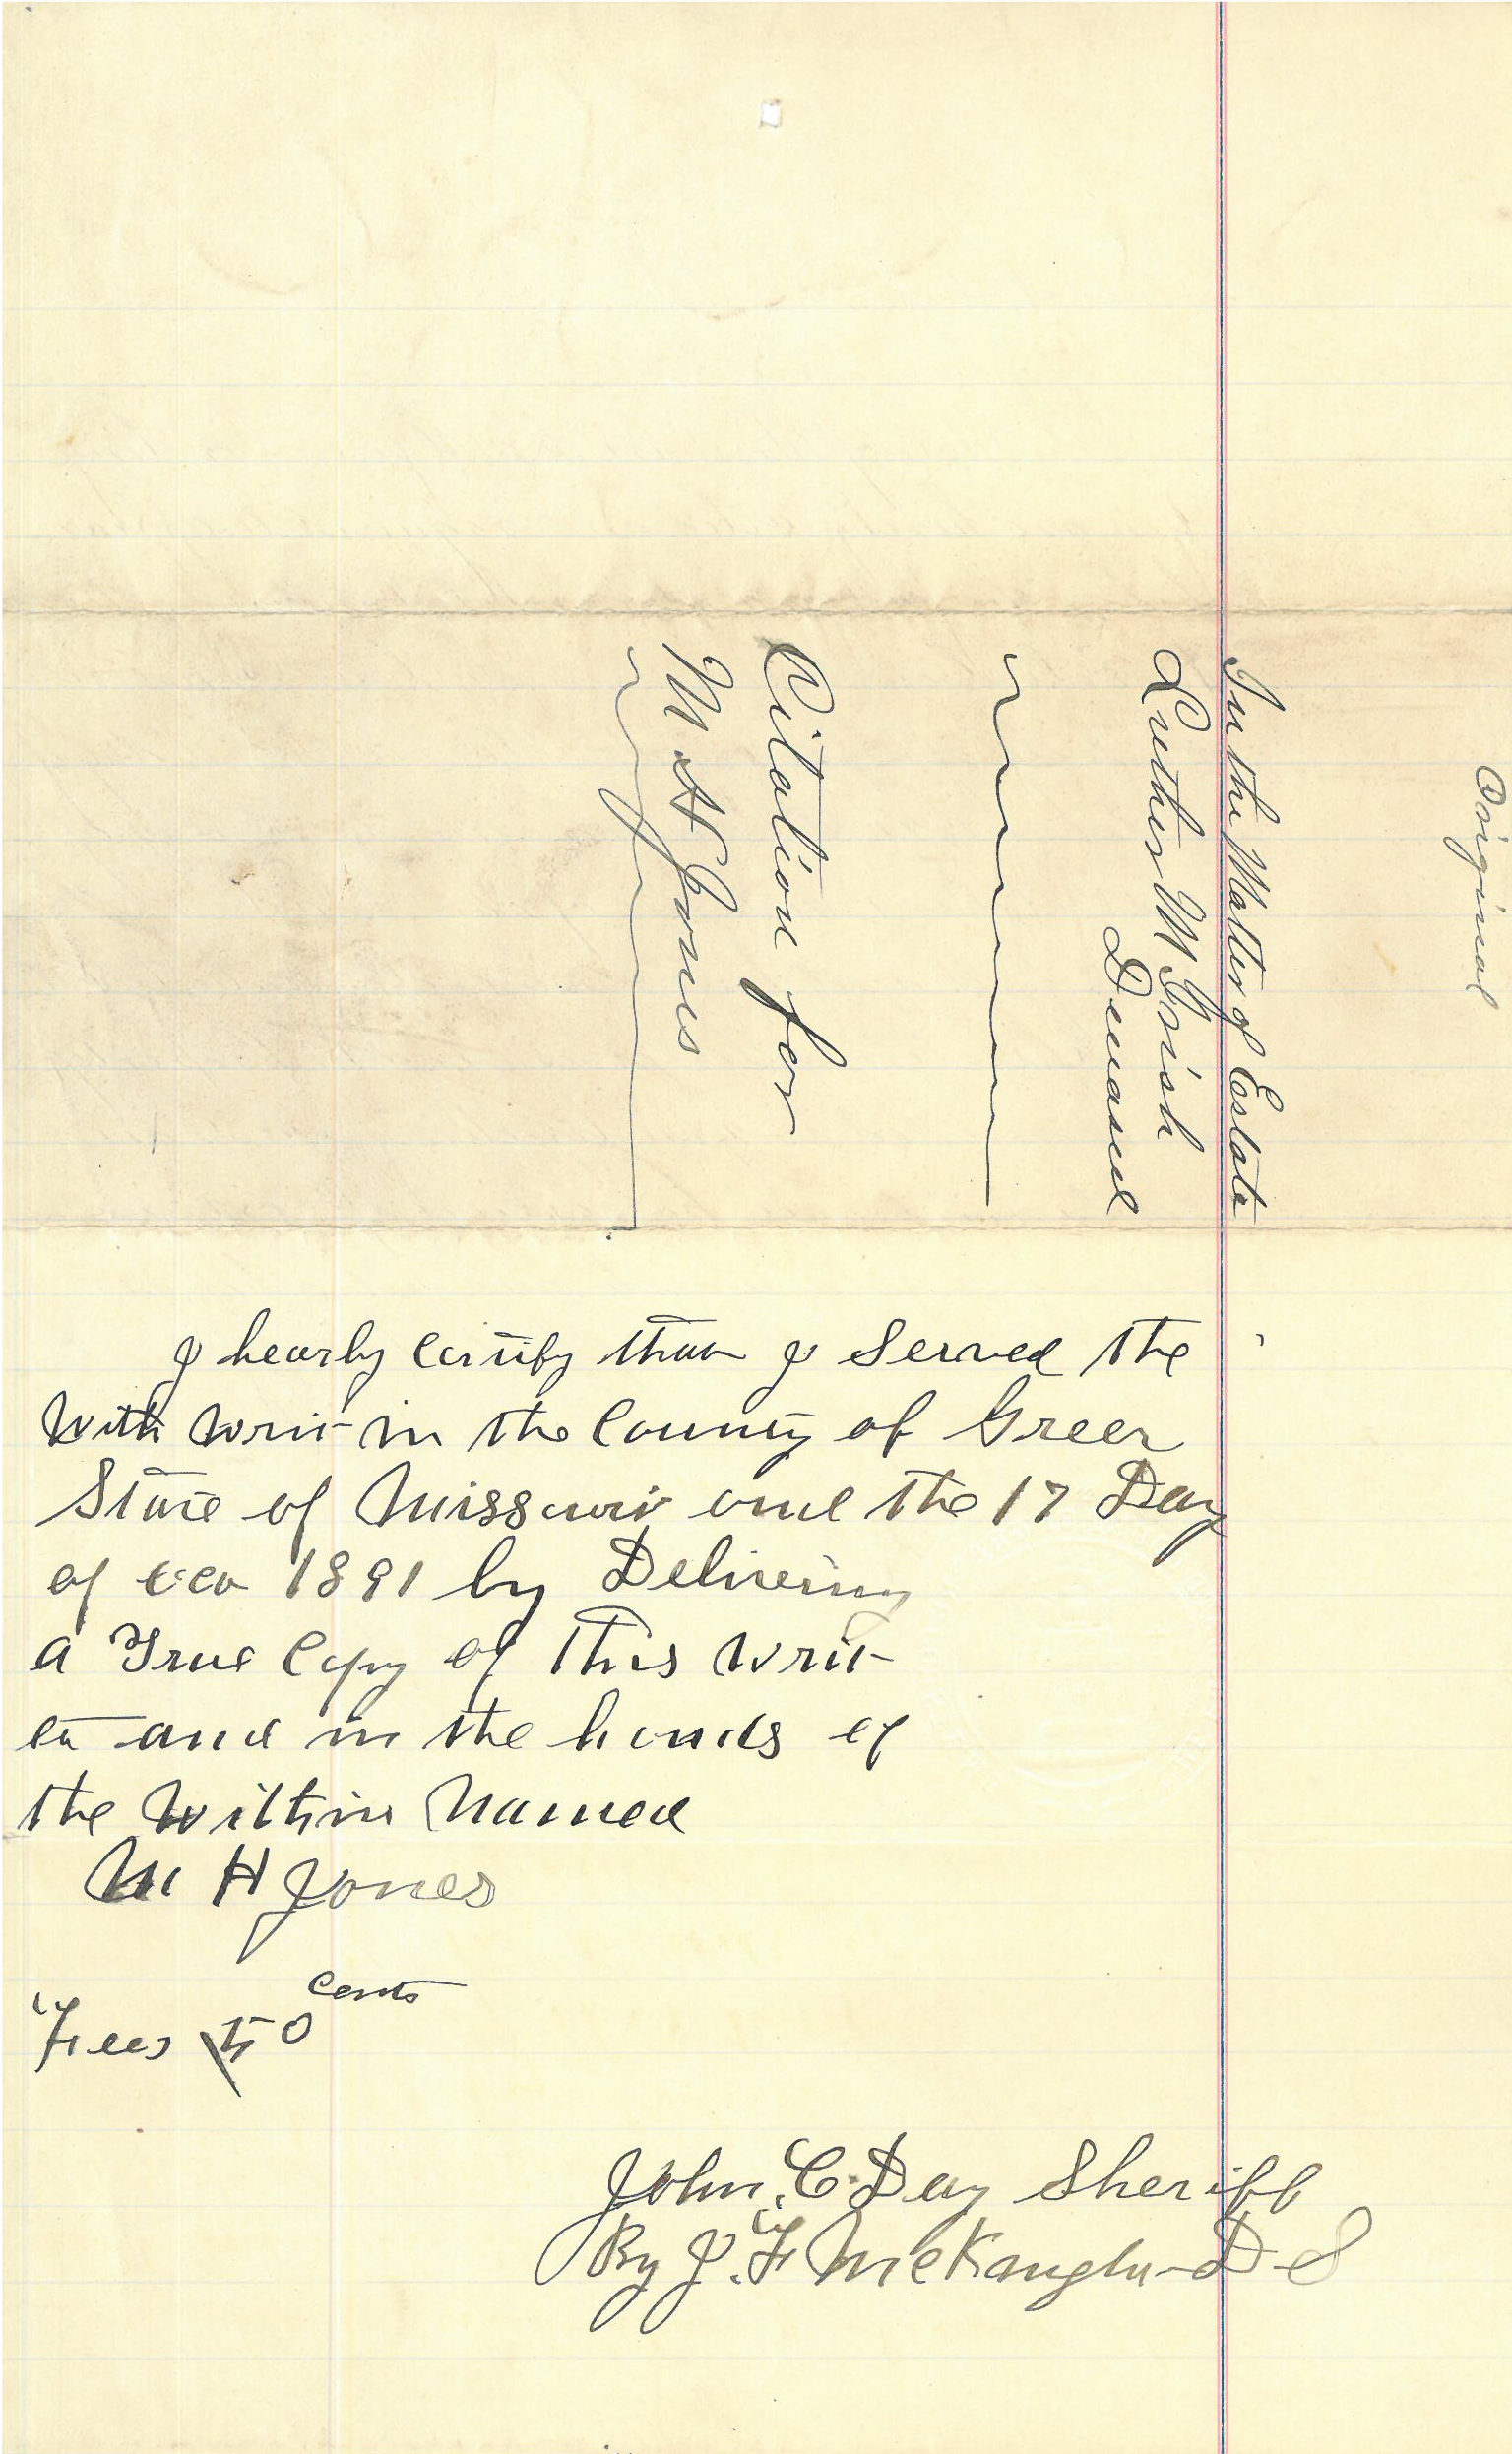 Original
In the Matter of Estate
Luther M Irish
Deceased
Citation for
M H Jones
I hearby certify that I Served the
With writ in the County of Green
State of Missouri and the 17 Day
of 1891 by Delivering
a True Copy of This writ
and in the hands of
the Within Named
M H Jones
Fees 50 cents
John. C. Day Sheriff
By J. F. McKaughn D S